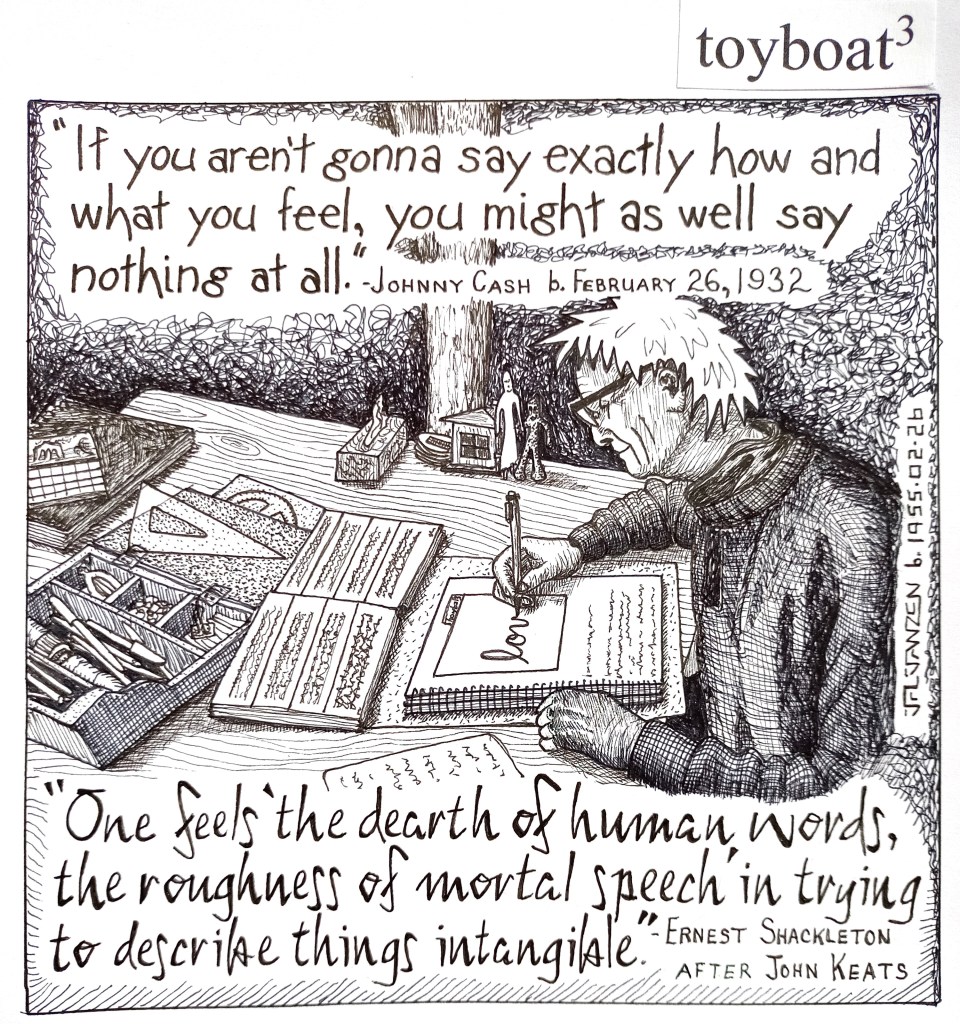 toyboat³
"If you aren't gonna say exactly how and
what you feel, you might as well say
nothing at all." -JOHNNY CASH b. FEBRUARY 26, 1932
love
"One feels 'the dearth of human words,
the roughness of mortal speech' in trying
to describe things intangible." -ERNEST SHACKLETON
AFTER JOHN KEATS
b. 1955.02.26